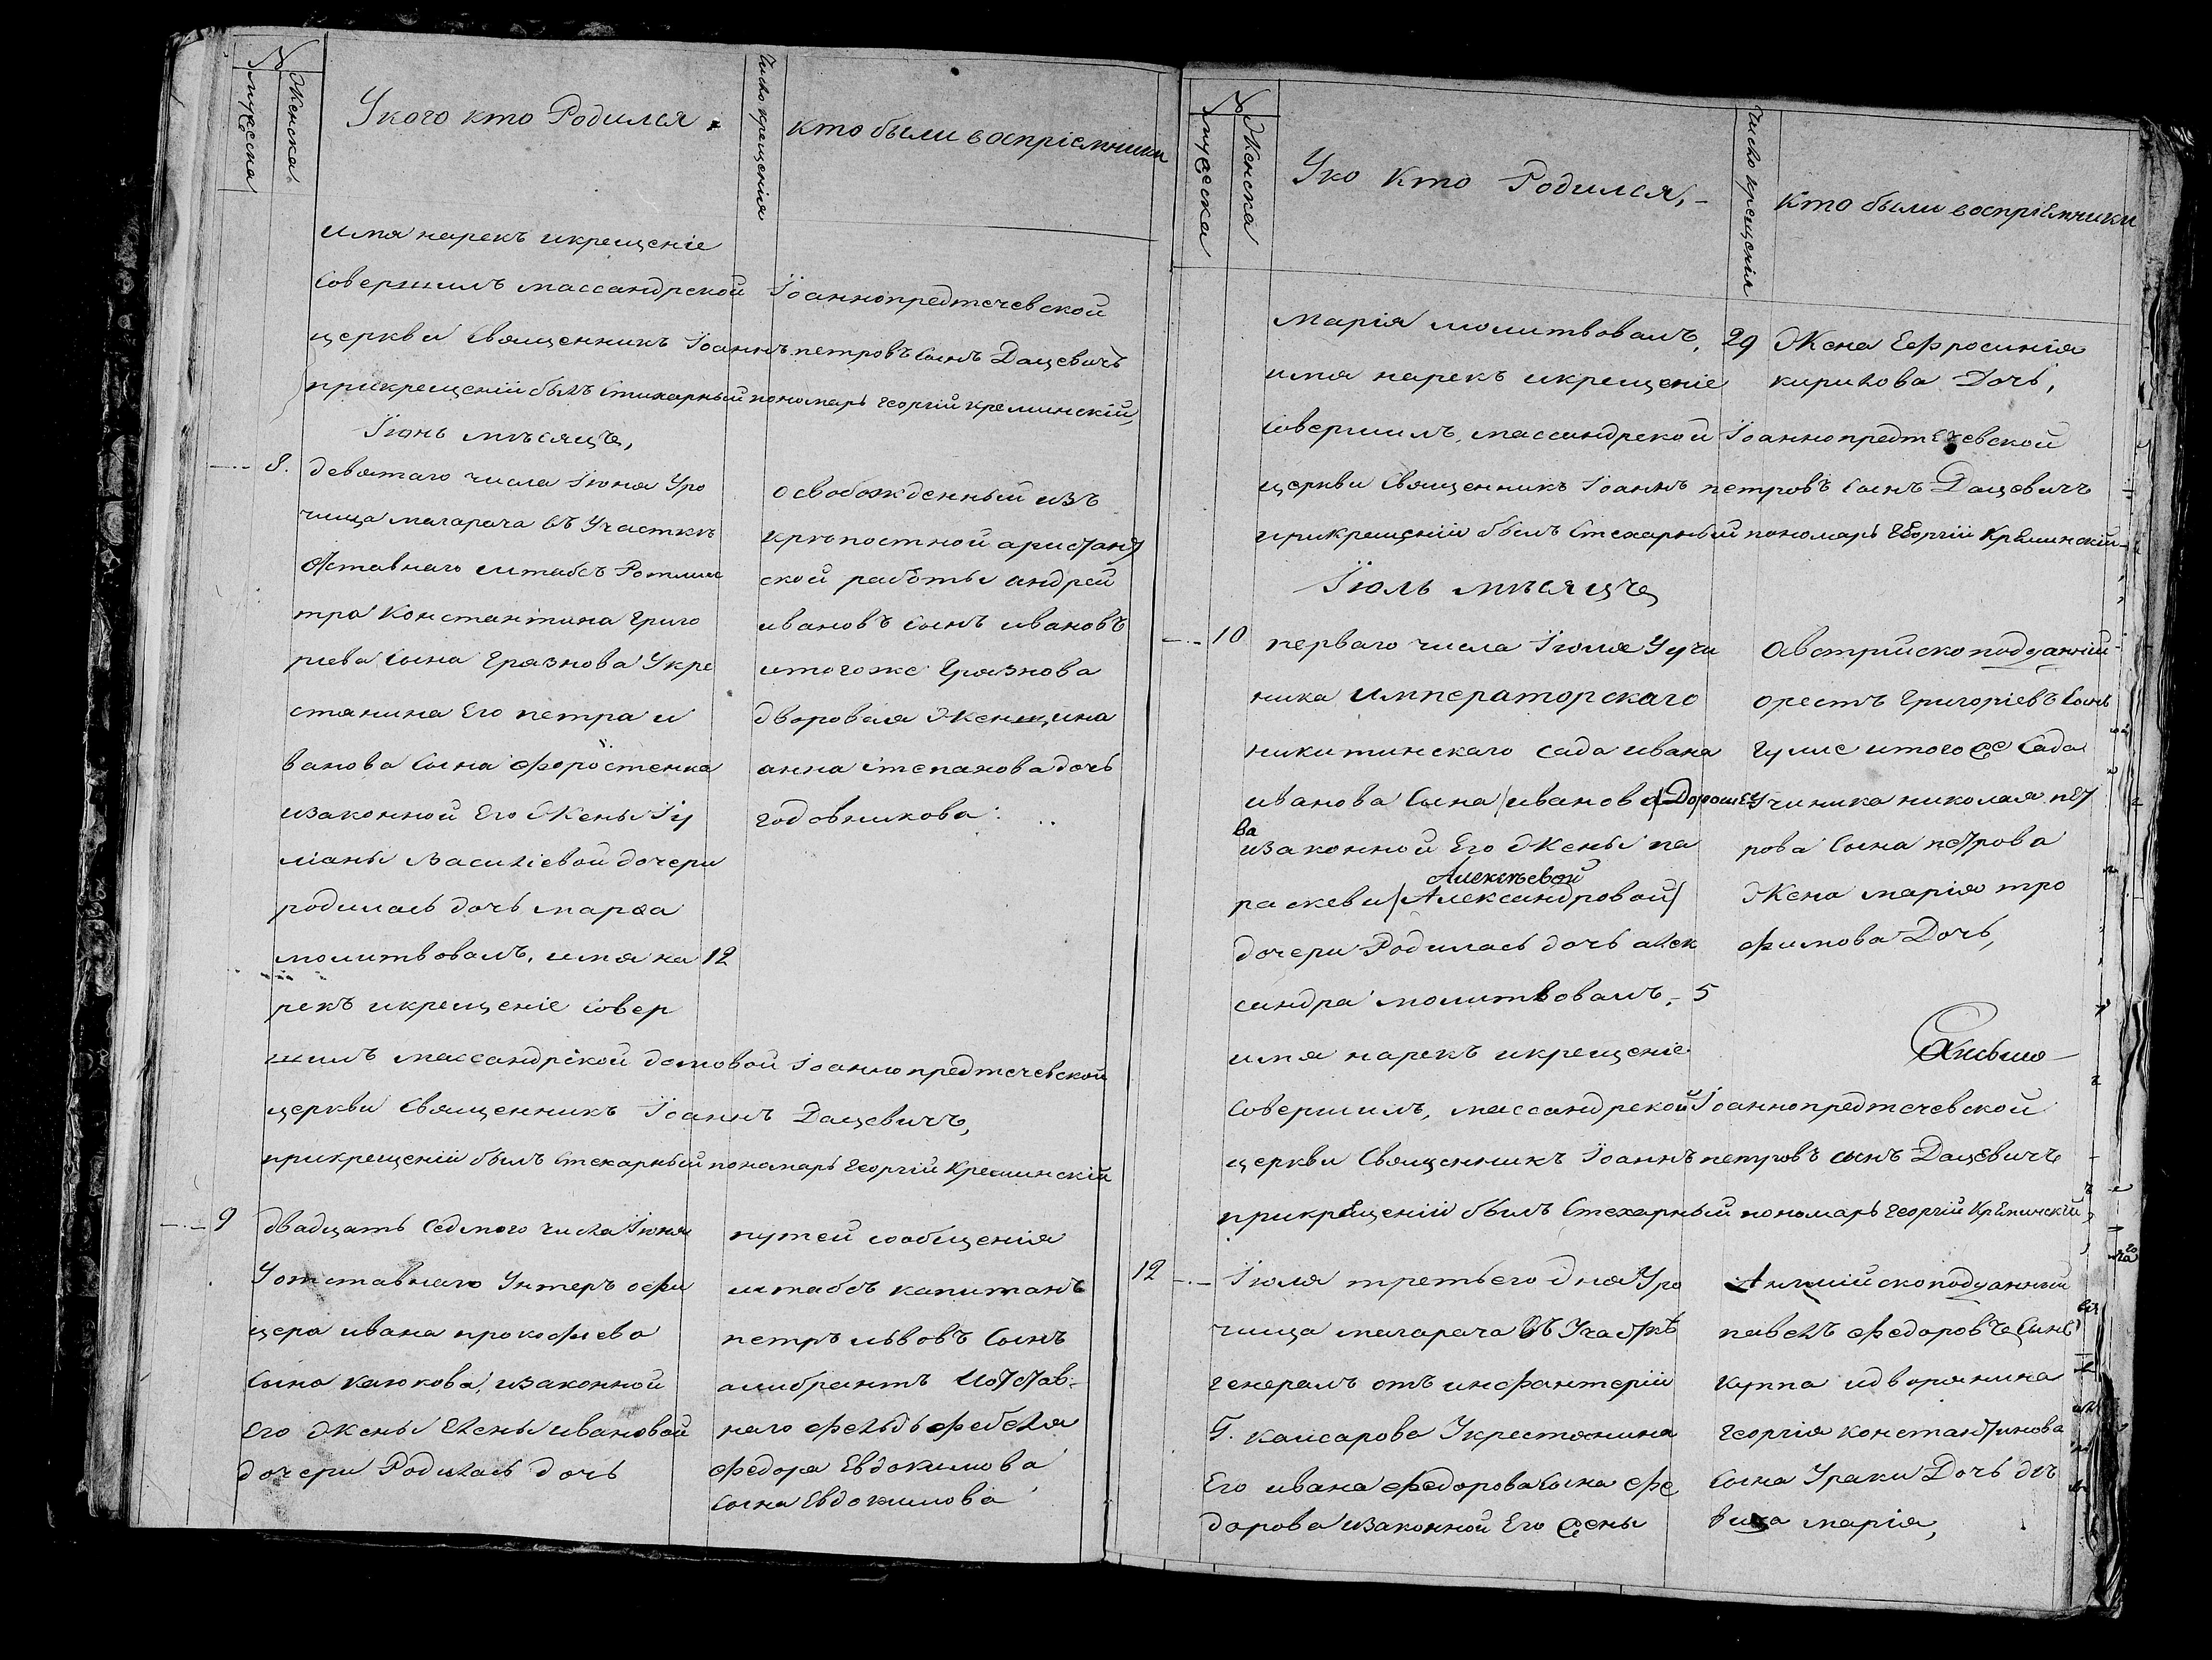 №
мужеска
Женска
У кого кто Родился.
Число крещенія
кто были воспріемники
имя нарекъ икрещеніе
Совершилъ массандрской Іоаннопредтечевской
церкви Священникъ Іоаннъ петровъ Сынъ Дацевичъ
прикрещеніи былъ Стихарный пономарь георгій креминскій,
Іюнь мѣсяцъ,
8. девятаго числа Іюня Уро
чища магарача въ Участкѣ
Отставнаго штабсъ Ротмис
тра Константина Григо
ріева Сына Грязнова Укре
стянина Его петра и
ванова Сына форостенка
изаконной Его Жены Іу
ліаны Василіевой дочери
родилась дочь марѳа
молитвовалъ, имя на 12
рекъ икрещеніе Совер
шилъ массандрской домовой Іоаннопредтечевской
церкви Священникъ Іоаннъ Дацевичъ,
прикрещеніи былъ Стехарный пономарь георгій Креминскій
освобожденный изъ
крѣпостной арестант
ской работы андрей
ивановъ Сынъ ивановъ
итогоже Грязнова
дворовая Женщина
анна Степанова дочь
годовникова:
9 двадцать седмого числа Іюня
У отставнаго Унтеръ офи
цера ивана прокофьева
Сына каюкова, изаконной
Его Жены Елены ивановой
дочери Родилась дочь
путей сообщенія
штабсъ капитанъ
петръ львовъ Сынъ
шибрантъ Иотстав-
наго фельдъфебеля
федора Евдокимова
Сына Евдокимова
№
мужеска
Женска
Уко Кто Родился,-
Число крещенія
Кто были воспріемники
марія молитвовалъ, 29 Жена Ефросинія
имя нарекъ икрещеніе кирилова Дочь,
Совершилъ, массандрской Іоаннопредтечевской
церкви Священникъ Іоаннъ петровъ Сынъ Дацевичъ
прикрещеніи былъ Стехарный пономарь Георгій Креминскій
Іюль мѣсяцъ
10 перваго числа Іюля Уучи
ника императорскаго
никитинскаго сада ивана
иванова Сына /иванова/ Дороше
ва
изаконной Его Жены па
Алексѣевой
раскеви /Александровой/
дочери Родилась дочь алек
сандра молитвовалъ,- 5
имя нарекъ икрещеніе
Совершилъ, массандрской Іоаннопредтечевской
церкви Священникъ Іоаннъ петровъ сынъ Дацевичъ
прикрещеніи былъ Стехарный пономарь георгій Креминскій
Австрійскоподданній
орестъ Григоріевъ Сынъ
гулис итогоже Сада
Учиника николая пет
рова Сына петрова
Жена марія тро
фимова Дочь,
12 Іюля третьего дня Уро
чища магарача въ Участкѣ
генералъ отъ инфантеріи
Г. каисарова Укрестянина
Его ивана федорова Сына фе
дорова изаконной Его Жены
Англійскоподданный
павелъ федоровъ Сынъ
куппа идворянина
георгія константинова
Сына Ураки Дочь дѣ
вица марія,